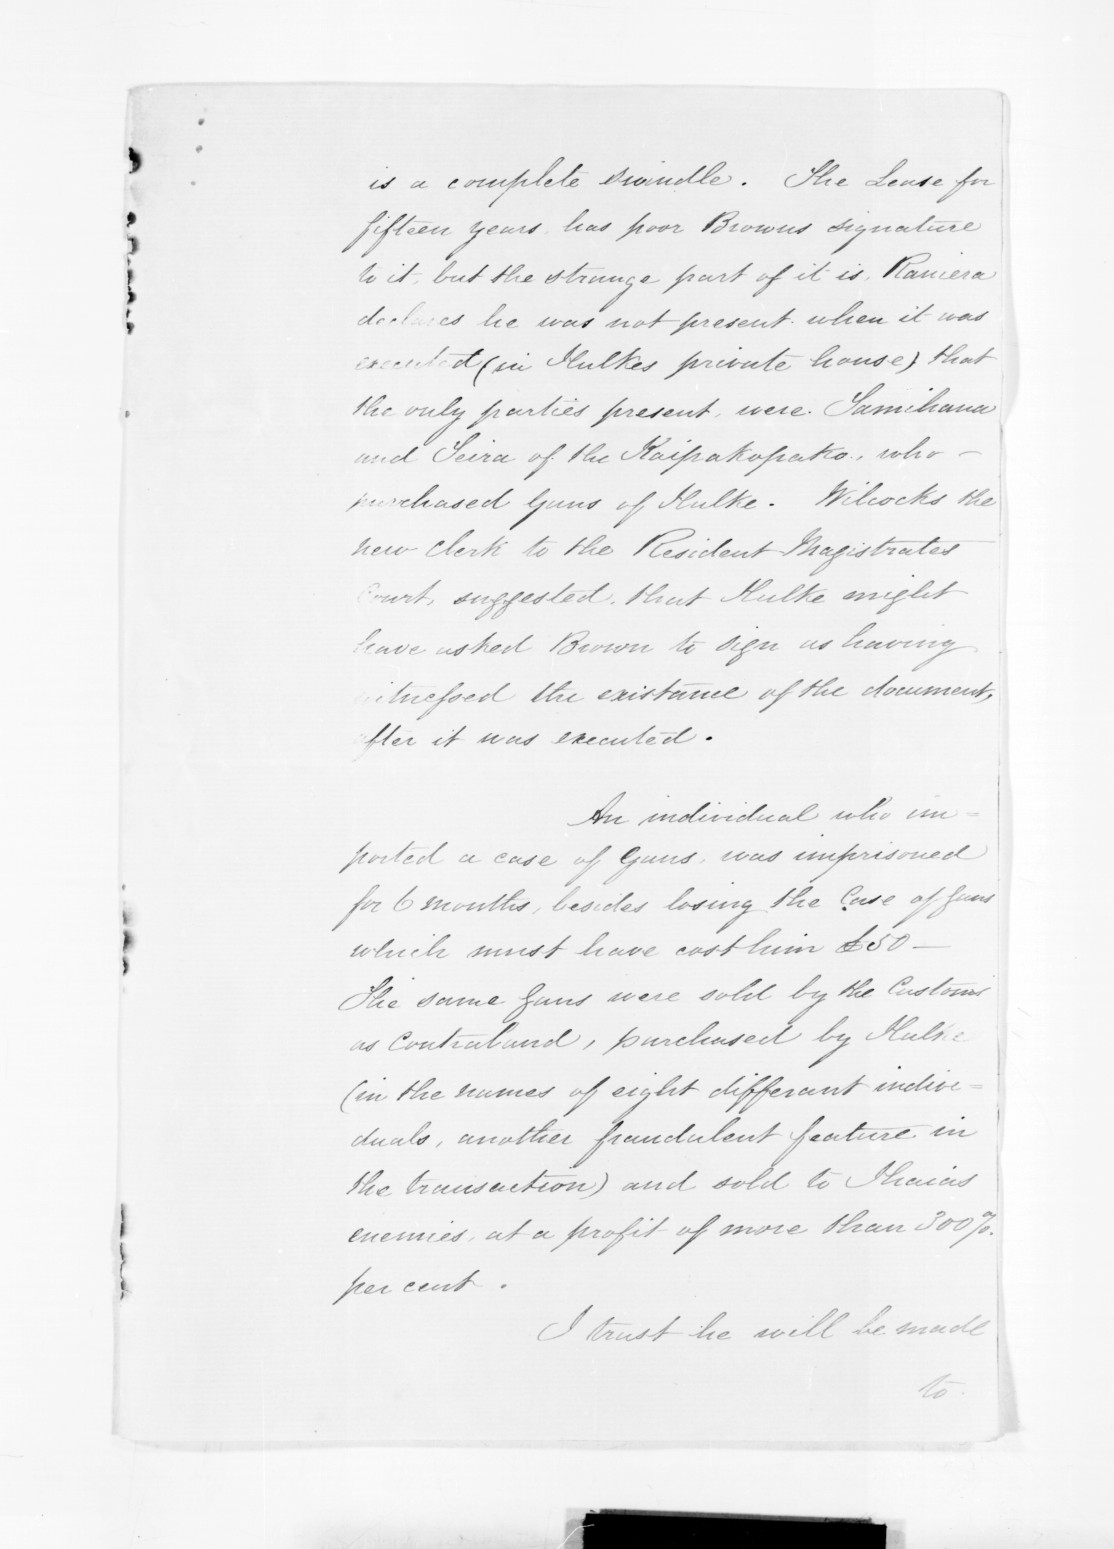 is a complete swindle. The Lease for
fifteen years, has poor Browns signature
to it, but the strange part of it is, Raniera
declares he was not present when it was
executed (in Hulkes private house) that
the only parties present, were Tamihana
and Teira of the Kaipakopako, who –
purchased Guns of Hulke. Wilcocks the
new Clerk to the Resident Magistrates
Court, suggested, that Hulke might
have asked Brown to sign as having
witnessed the existance of the document,
after it was executed.
An individual who im=
ported a case of Guns, was imprisoned
for 6 months, besides losing the Case of Guns
which must have cost him £50 –
The same Guns were sold by the Customs
as Contraband, purchased by Hulke
(in the names of eight differant indivi=
duals, another fraudulent feature in
the transaction) and sold to Ihaias
enemies, at a profit of more than 300%.
per cent.
I trust he will be made
to